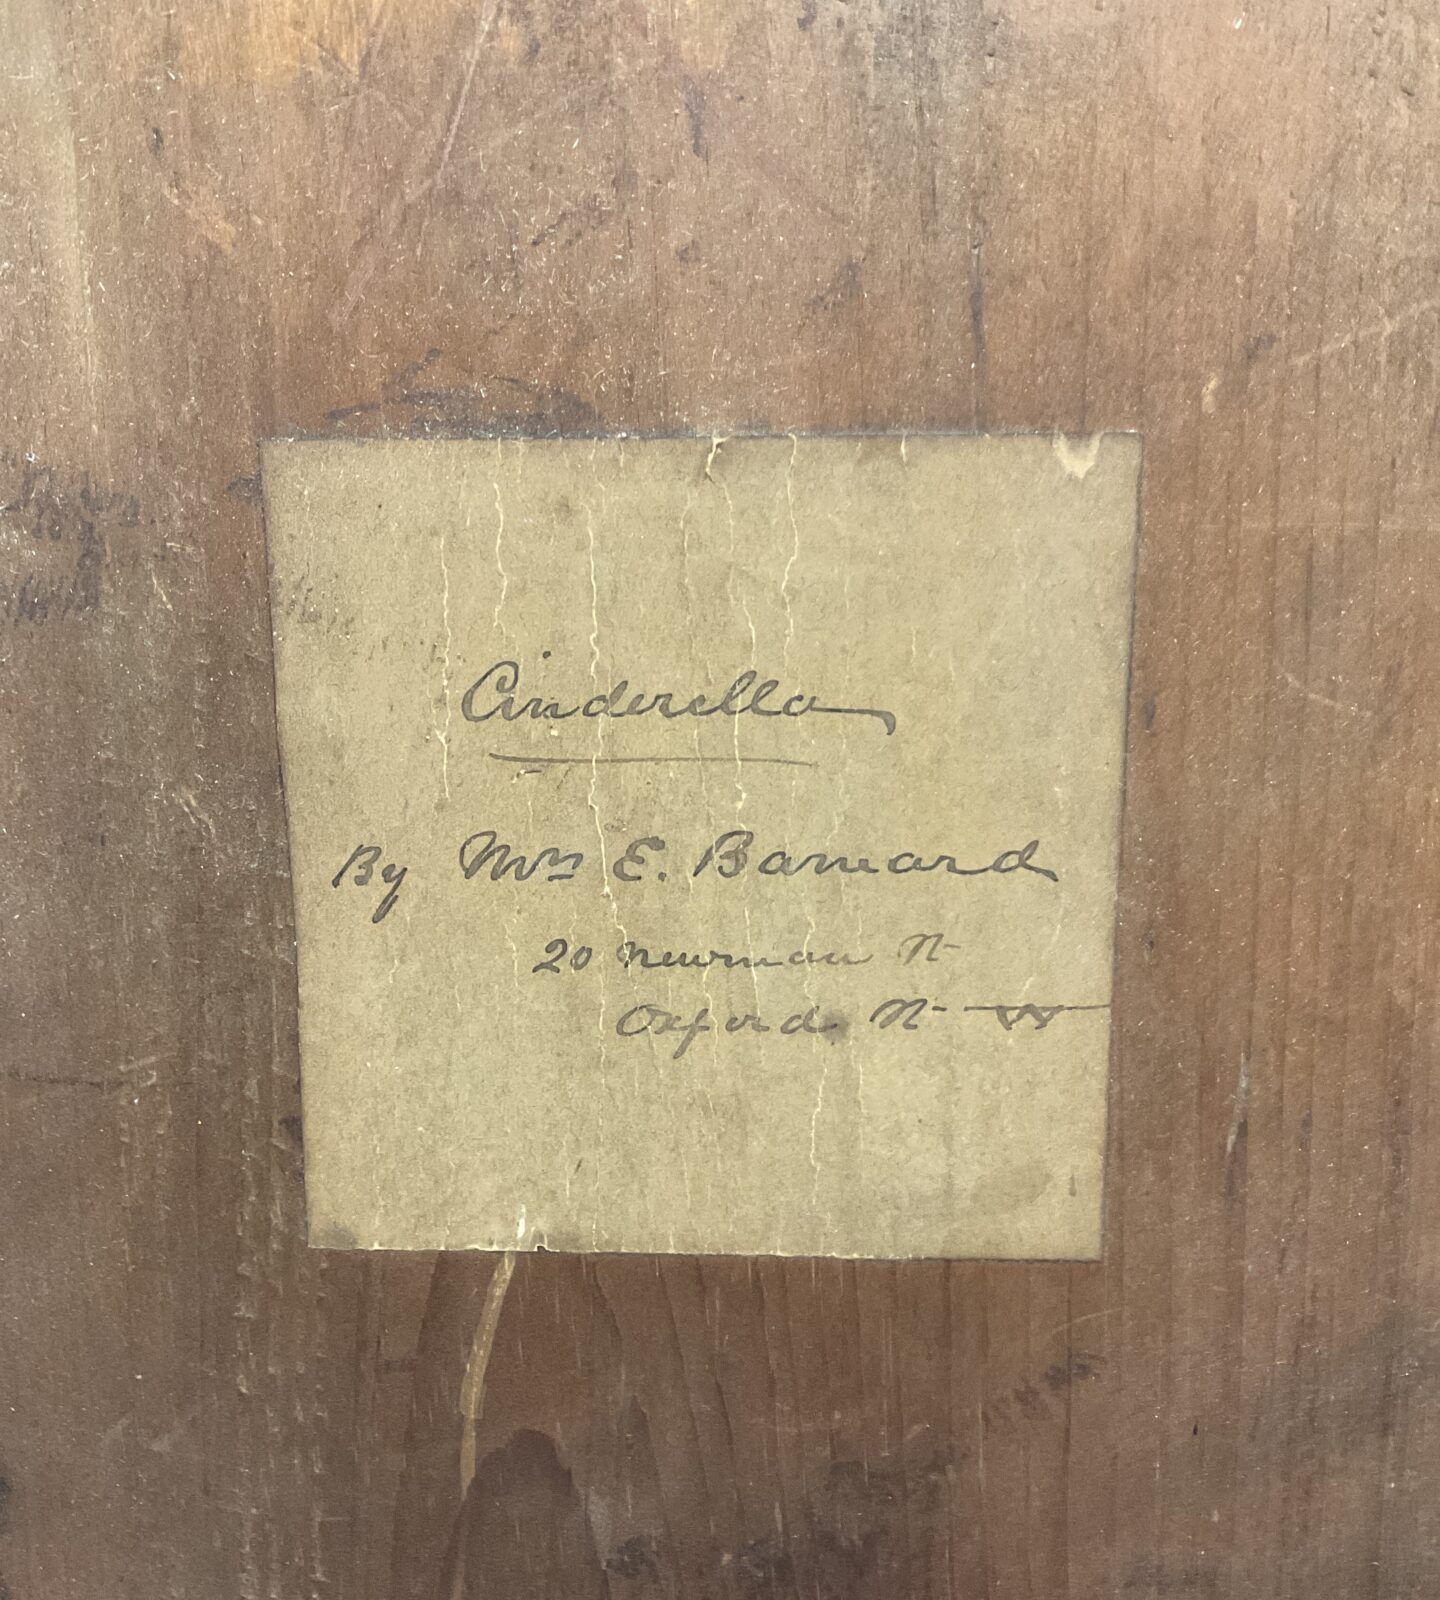 Cinderella
By Mrs E. Barnard
20 Newman St
Oxford St W